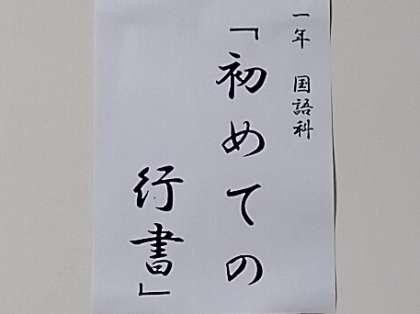 一年 国語科
「初めての
行書」